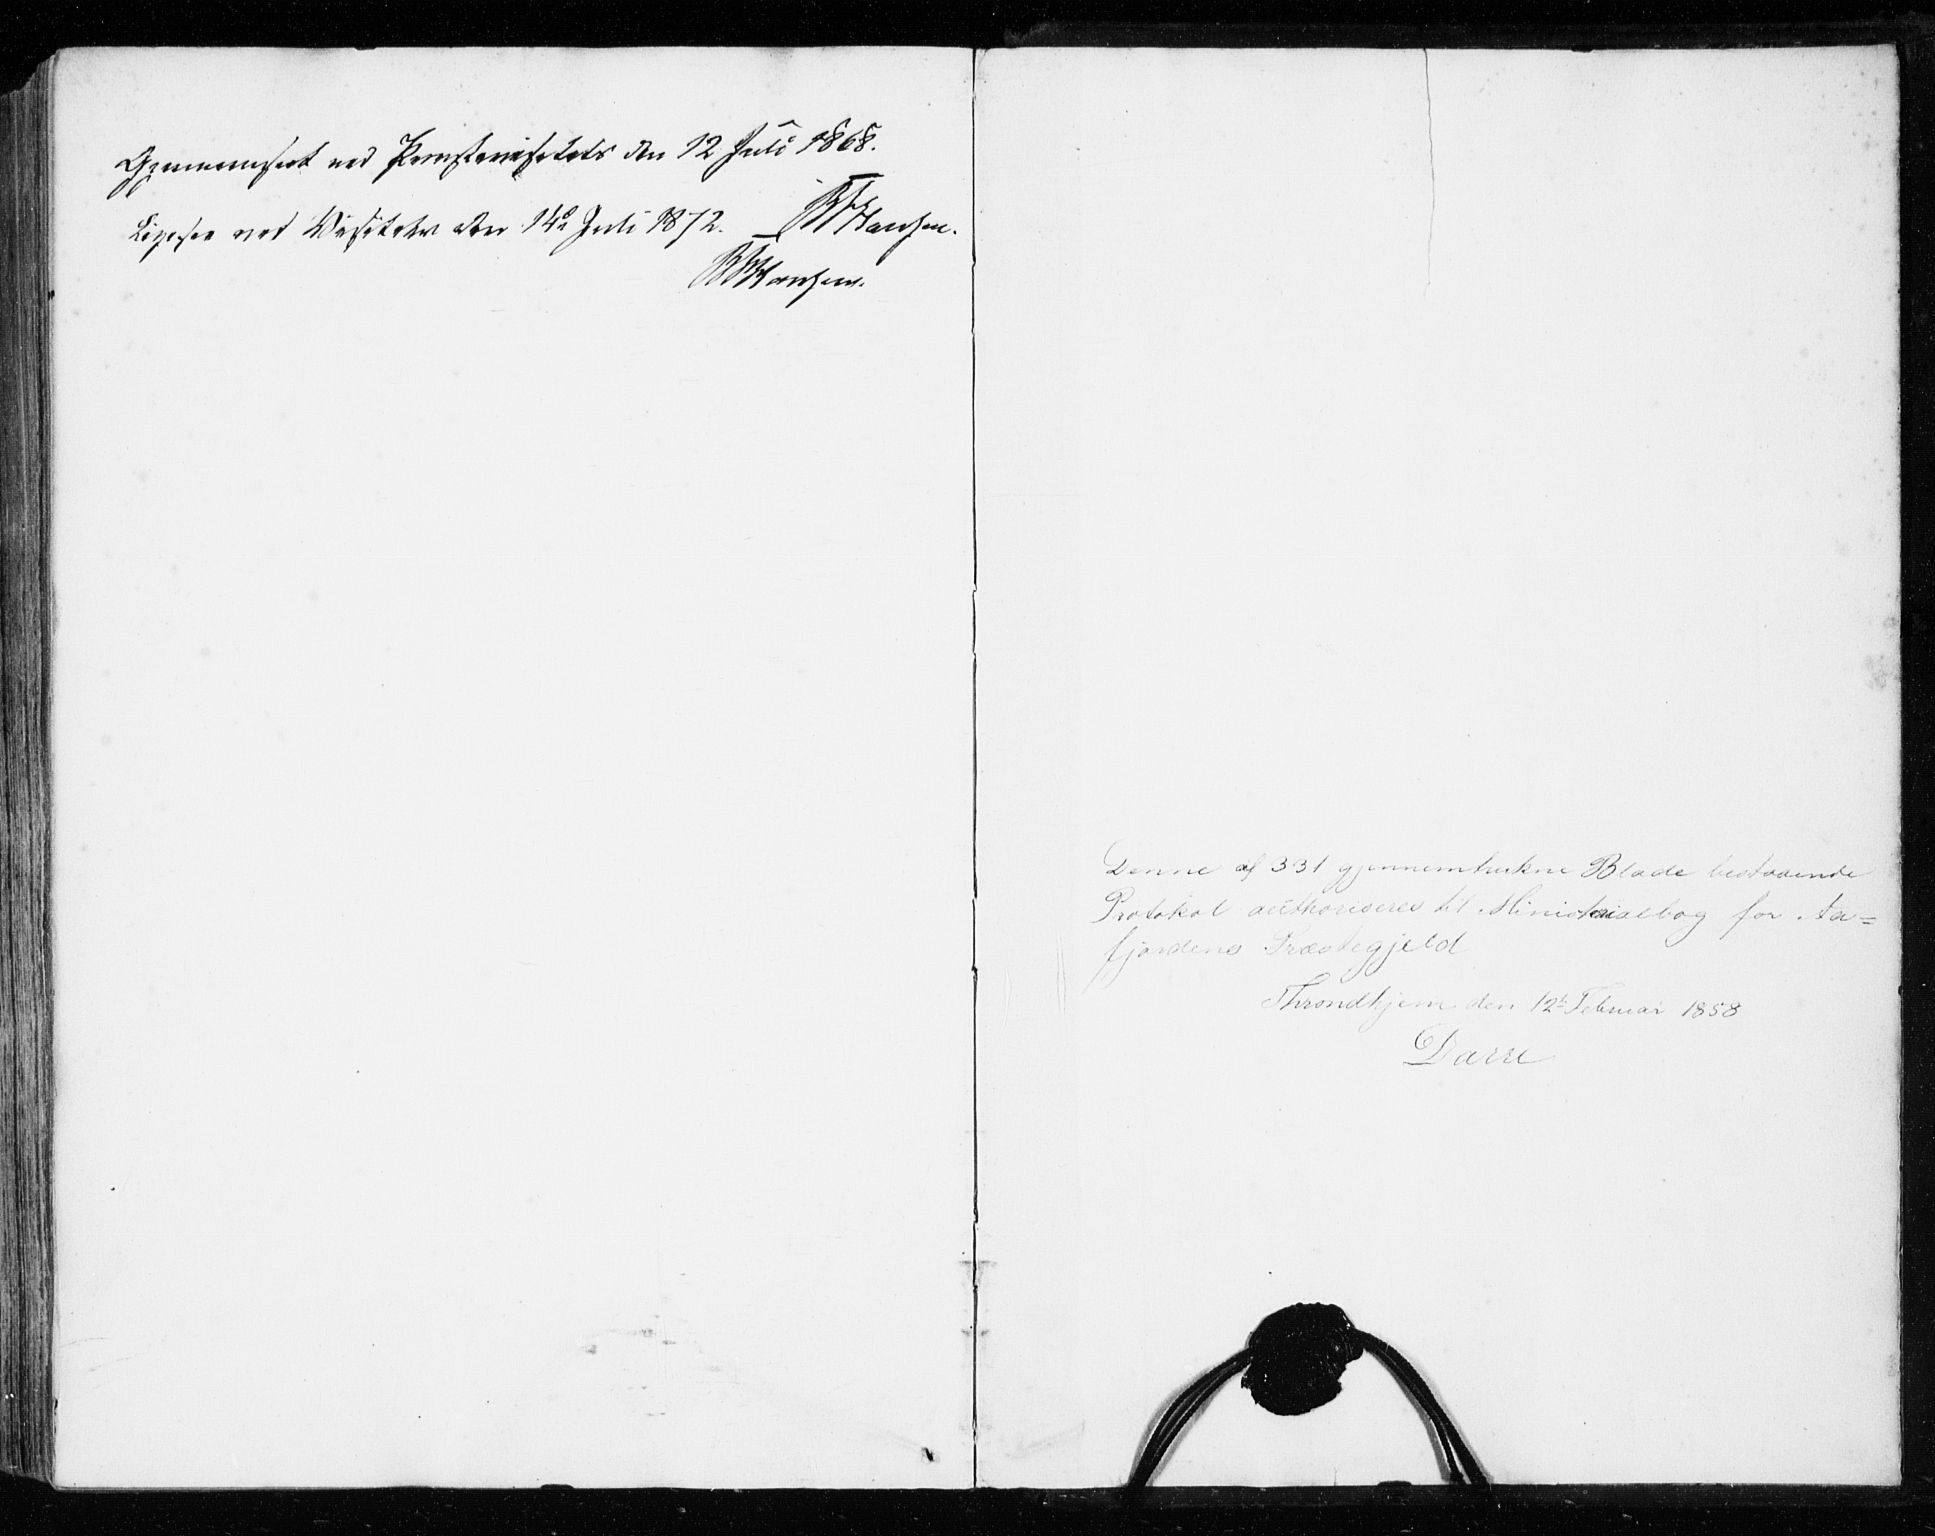 Gjennemseet ved Provstevisitats den 12 Juli 1868.
Ligesaa ved Visitats den 14de Juli 1872. Hansen.
Hansen.
Denne af 331 gjennemtrukne Blade bestaaende
Protokol authoriseres til Ministerialbog for Aa=
fjordens Præstegjeld
Throndhjem den 12te Februar 1858
Darre